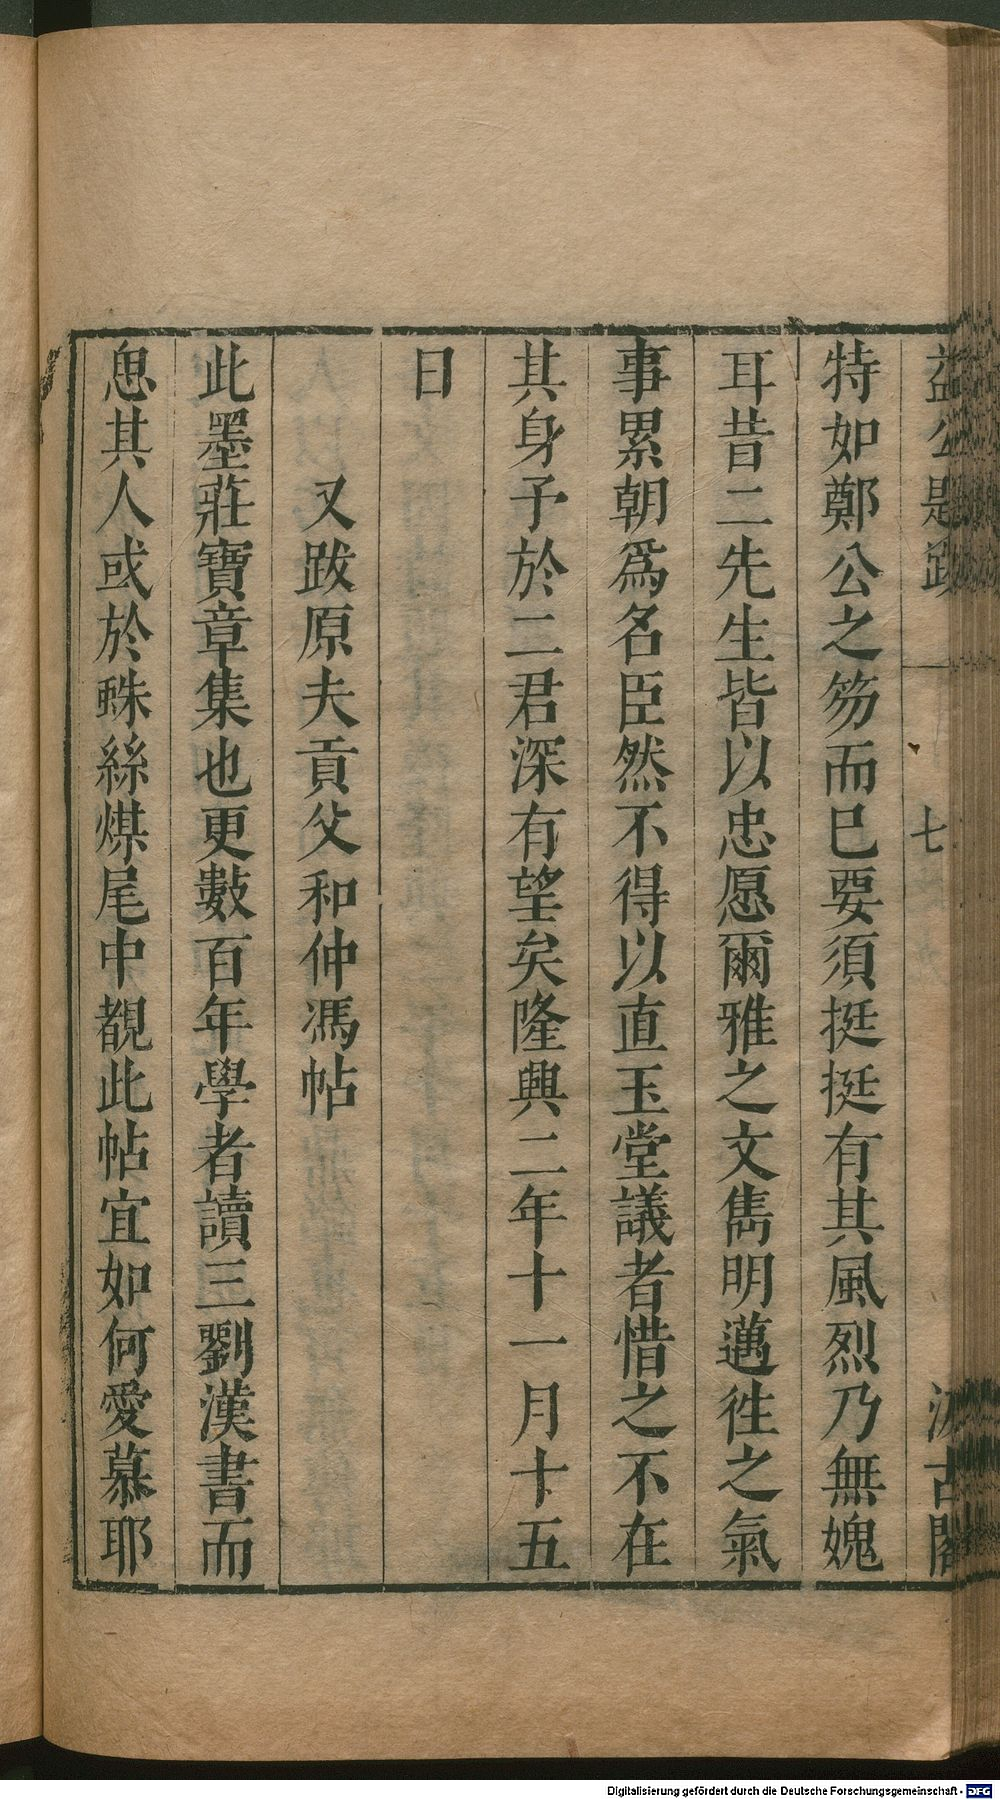 益公題跋 七 汲古閣
特如鄭公之笏而已要須挺挺有其風烈乃無媿
耳昔二先生皆以忠愿爾雅之文雋明邁徃之氣
事累朝爲名臣然不得以直玉堂議者惜之不在
其身予於二君深有望矣隆興二年十一月十五
日
又跋原夫貢父和仲馮帖
此墨莊寶章集也更數百年學者讀三劉漢書而
思其人或於蛛絲煤尾中覩此帖宜如何愛慕耶
Digitalisierung gefördert durch die Deutsche Forschungsgemeinschaft - DFG